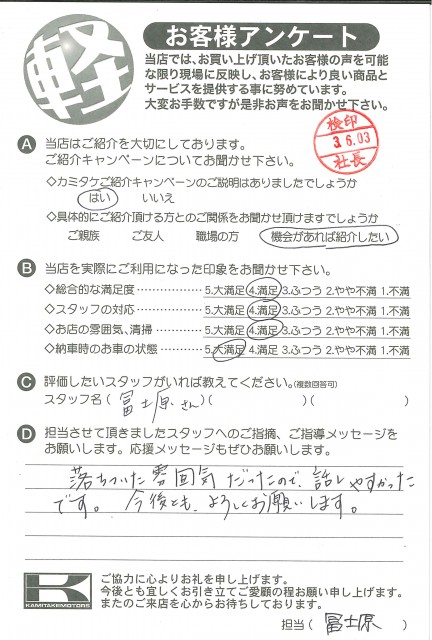 軽
お客様アンケート
当店では、お買い上げ頂いたお客様の声を可能
な限り現場に反映し、お客様により良い商品と
サービスを提供する事に努めています。
大変お手数ですが是非お声をお聞かせ下さい。
検印
3.6.03
社長
A 当店はご紹介を大切にしております。
ご紹介キャンペーンについてお聞かせ下さい。
◇カミタケご紹介キャンペーンのご説明はありましたでしょうか
はい いいえ
◇具体的にご紹介頂ける方とのご関係をお聞かせ頂けますでしょうか
ご親族 ご友人 職場の方 機会があれば紹介したい
B 当店を実際にご利用になった印象をお聞かせ下さい。
◇総合的な満足度 ……………… 5.大満足 4.満足 3.ふつう 2.やや不満 1.不満
◇スタッフの対応 ……………… 5.大満足 4.満足 3.ふつう 2.やや不満 1.不満
◇お店の雰囲気、清掃 ………… 5.大満足 4.満足 3.ふつう 2.やや不満 1.不満
◇納車時のお車の状態 ………… 5.大満足 4.満足 3.ふつう 2.やや不満 1.不満
C 評価したいスタッフがいれば教えてください。(複数回答可)
スタッフ名 ( 冨士原さん )( )( )
D 担当させて頂きましたスタッフへのご指摘、ご指導メッセージを
お願いします。応援メッセージもぜひお願いします。
落ちついた雰囲気だったので、話しやすかった
です。今後とも、よろしくお願いします。
K
KAMITAKEMOTORS
ご協力に心よりお礼を申し上げます。
今後とも宜しくお引き立てご愛顧の程お願い申し上げます。
またのご来店を心からお待ちしております。
担当 ( 冨士原 )